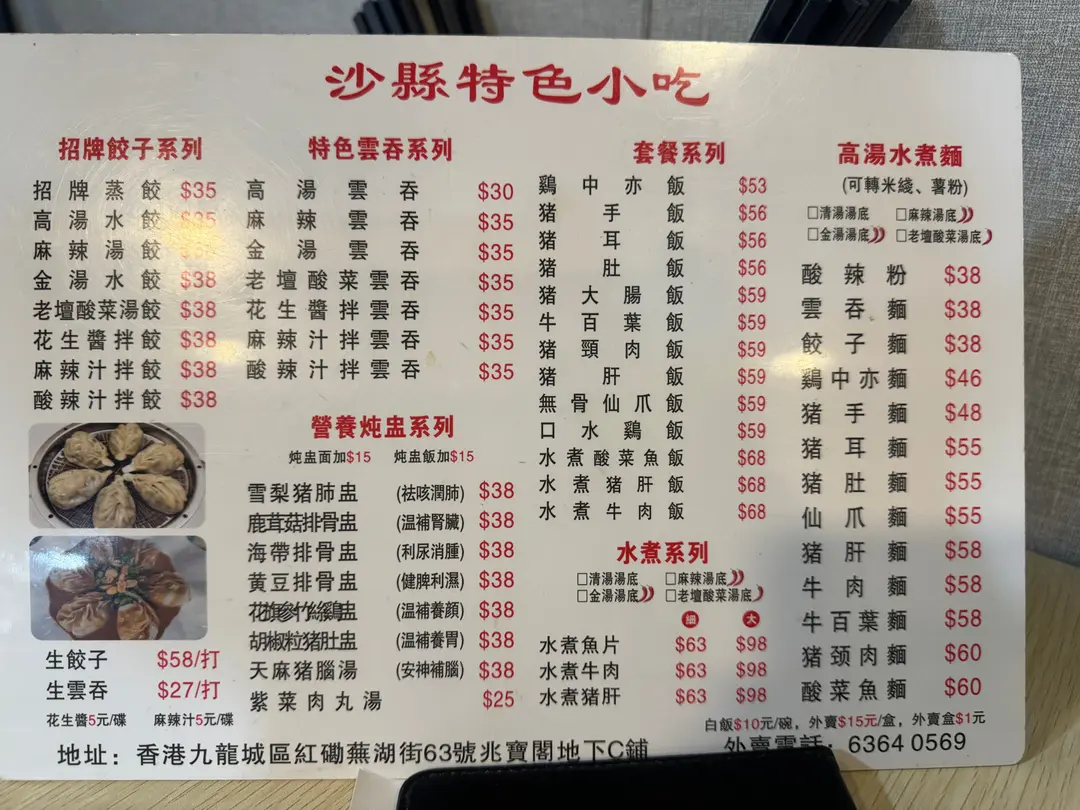 沙縣特色小吃
招牌餃子系列
招牌蒸餃 $35
高湯水餃 $35
麻辣湯餃
金湯水餃 $38
老壇酸菜湯餃 $38
花生醬拌餃 $38
麻辣汁拌餃 $38
酸辣汁拌餃 $38
生餃子 $58/打
生雲吞 $27/打
花生醬5元/碟 麻辣汁5元/碟
特色雲吞系列
高湯雲吞 $30
麻辣雲吞 $35
金湯雲吞 $35
老壇酸菜雲吞 $35
花生醬拌雲吞 $35
麻辣汁拌雲吞 $35
酸辣汁拌雲吞 $35
營養炖盅系列
炖盅面加$15 炖盅飯加$15
雪梨猪肺盅 (祛咳潤肺) $38
鹿茸菇排骨盅 (溫補腎臟) $38
海帶排骨盅 (利尿消腫) $38
黄豆排骨盅 (健脾利濕) $38
花旗參竹絲鷄盅 (溫補養顏) $38
胡椒粒猪肚盅 (溫補養胃) $38
天麻猪腦湯 (安神補腦) $38
紫菜肉丸湯 $25
套餐系列
鷄中亦飯 $53
猪手飯 $56
猪耳飯 $56
猪肚飯 $56
猪大腸飯 $59
牛百葉飯 $59
猪頸肉飯 $59
猪肝飯 $59
無骨仙爪飯 $59
口水鷄飯 $59
水煮酸菜魚飯 $68
水煮猪肝飯 $68
水煮牛肉飯 $68
水煮系列
□清湯湯底 □麻辣湯底
□金湯湯底 □老壇酸菜湯底
細 大
水煮魚片 $63 $98
水煮牛肉 $63 $98
水煮猪肝 $63 $98
高湯水煮麵
(可轉米綫、薯粉)
□清湯湯底 □麻辣湯底
□金湯湯底 □老壇酸菜湯底
酸辣粉 $38
雲吞麵 $38
餃子麵 $38
鷄中亦麵 $46
猪手麵 $48
猪耳麵 $55
猪肚麵 $55
仙爪麵 $55
猪肝麵 $58
牛肉麵 $58
牛百葉麵 $58
猪颈肉麵 $60
酸菜魚麵 $60
白飯$10元/碗，外賣$15元/盒，外賣盒$1元
地址：香港九龍城區紅磡蕪湖街63號兆寶閣地下C鋪
外賣電話：6364 0569